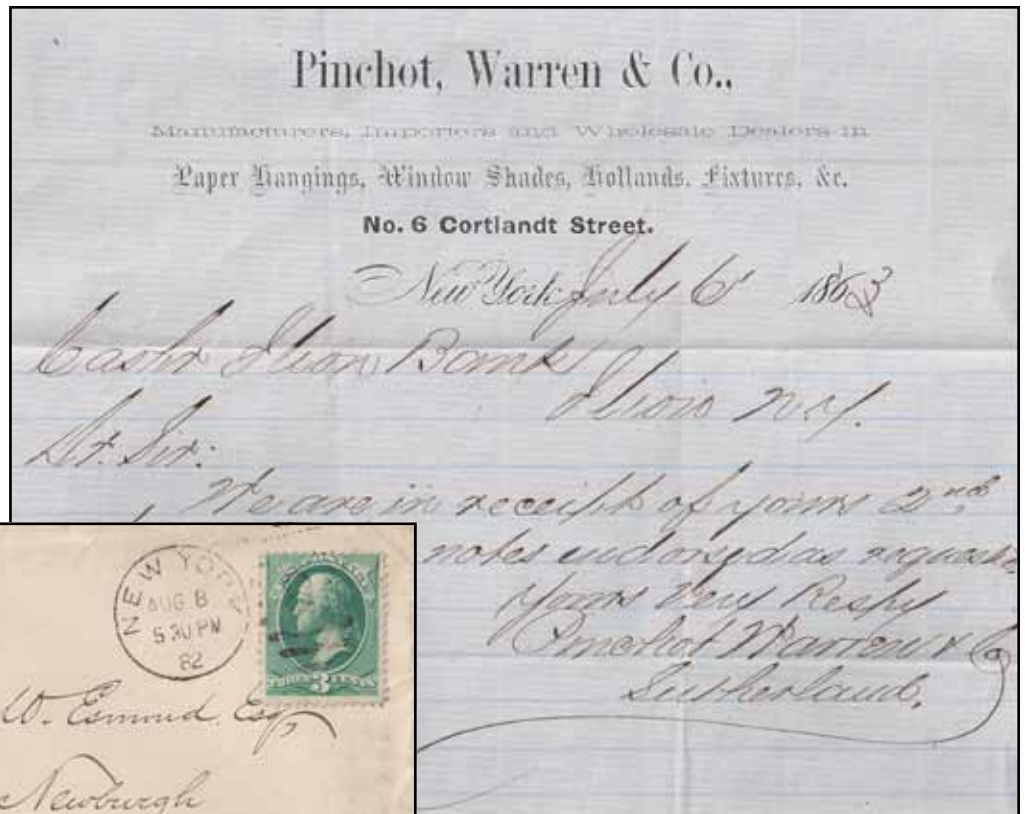 Pinchot, Warren & Co.,
Manufacturers, Importers and Wholesale Dealers in
Paper Hangings, Window Shades, Hollands, Fixtures, &c.
No. 6 Cortlandt Street.
New York July 6 1863
Cashr Ilion Bank
Ilion N.Y.
Dr. Sir:
We are in receipt of yours 2nd
notes endorsed as requeste
Yours Very Respy
Pinchot Warren & Co
Sutherland.
NEW YORK
AUG 8
5 30 PM
82
3
W. Esmond Esq
Newburgh